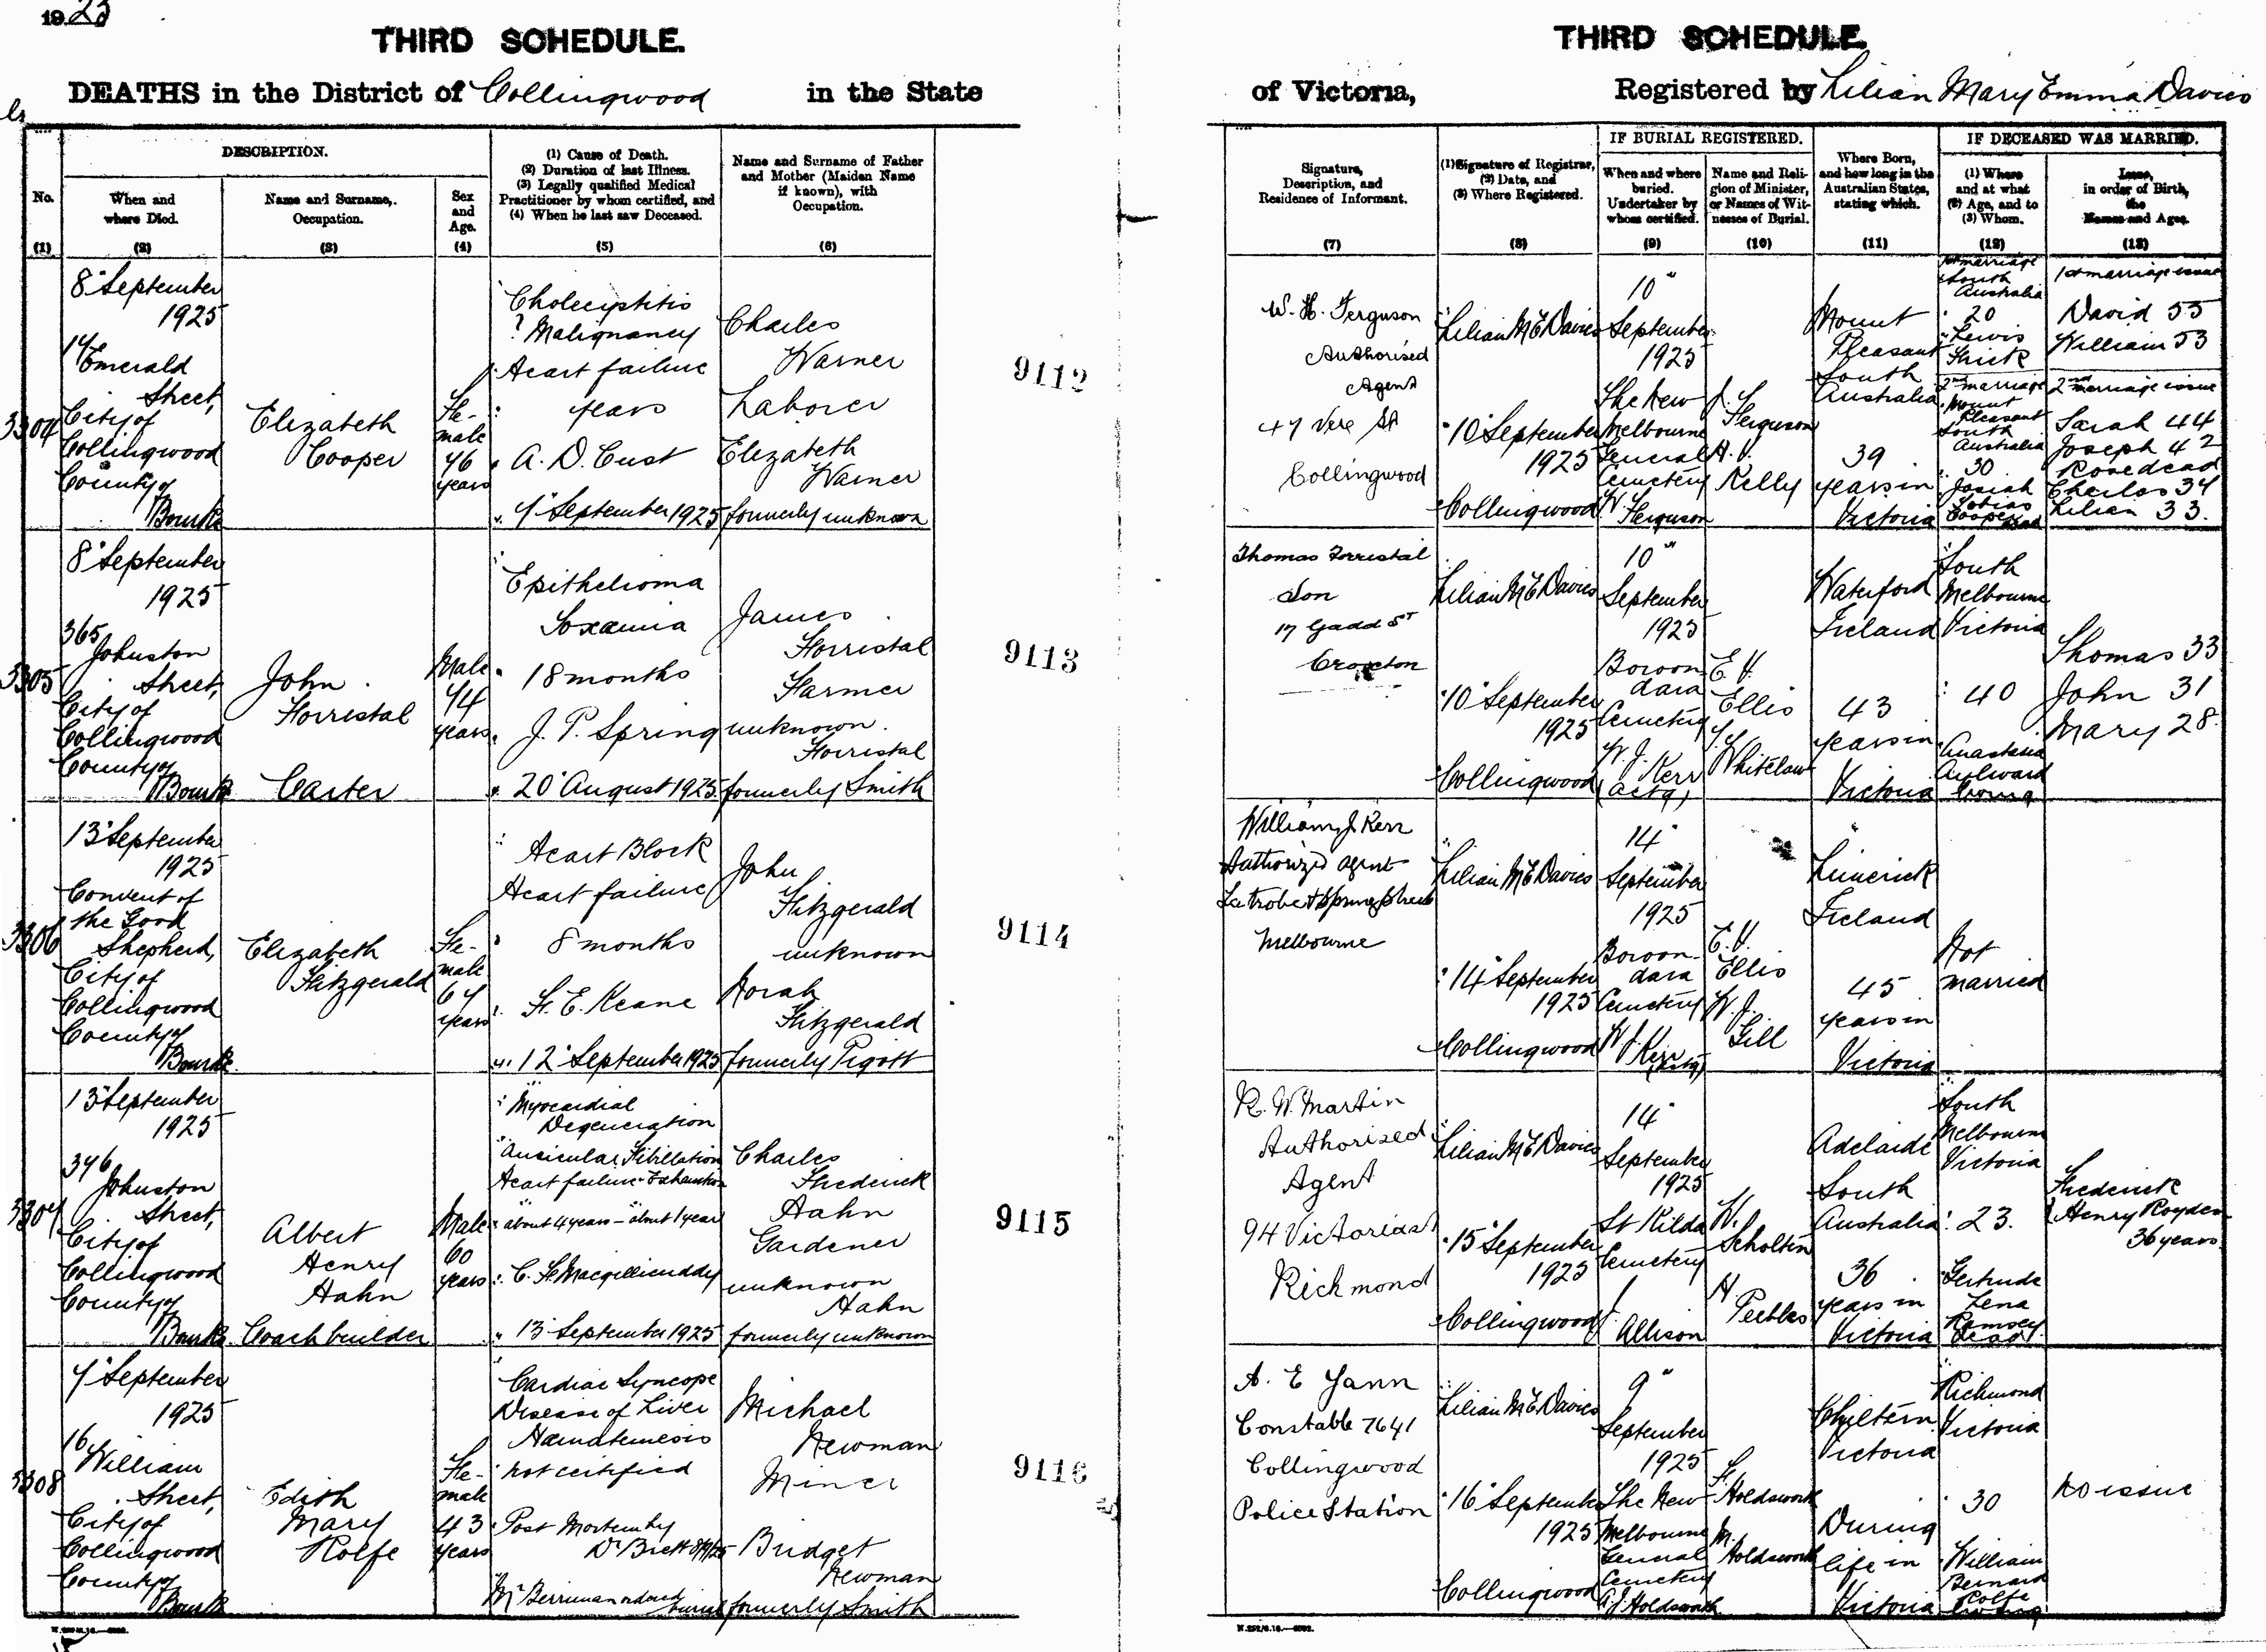 1925
THIRD SCHEDULE.
DEATHS in the District of Collingwood in the State
No.
(1)
DESCRIPTION.
When and
where Died.
(2)
Name and Surname,
Occupation.
(3)
Sex
and
Age.
(4)
(1) Cause of Death.
(2) Duration of last Illness.
(3) Legally qualified Medical
Practitioner by whom certified, and
(4) When he last saw Deceased.
(5)
Name and Surname of Father
and Mother (Maiden Name
if known), with
Occupation.
(6)
THIRD SCHEDULE.
of Victoria, Registered by Lilian Mary Emma Davies
Signature,
Description, and
Residence of Informant.
(7)
(1) Signature of Registrar,
(2) Date, and
(3) Where Registered.
(8)
IF BURIAL REGISTERED.
When and where
buried.
Undertaker by
whom certified.
(9)
Name and Reli-
gion of Minister,
or Names of Wit-
nesses of Burial.
(10)
Where Born,
and how long in the
Australian States,
stating which.
(11)
IF DECEASED WAS MARRIED.
(1) Where
and at what
(2) Age, and to
(3) Whom.
(12)
Issue,
in order of Birth,
the
Names and Ages.
(13)
3304
8" September
1925
14 Emerald
Street,
City of
Collingwood
County of
Bourke
Elizabeth
Cooper
Fe-
male
76
years
Cholecystitis
? Malignancy
Heart failure
years
A. D. Cust
7" September 1925
Charles
Warner
Laborer
Elizabeth
Warner
formerly unknown
9112
W. H. Ferguson
Authorised
Agent
47 Vere St
Collingwood
Lilian M E Davies
10" September
1925
Collingwood
10"
September
1925
The New
Melbourne
General
Cemetery
W.
Ferguson
J.
Ferguson
H. V.
Kelly
Mount
Pleasant
South
Australia
39
years in
Victoria
1st marriage
South
Australia
20
Lewis
Thick
2nd marriage
Mount
Pleasant
South
Australia
30
Josiah
Tobias
Cooper
dead
1st marriage issue
David 55
William 53
2nd marriage issue
Sarah 44
Joseph 42
Rose dead
Charles 37
Lilian 33.
3305
8" September
1925
365
Johnston
Street,
City of
Collingwood
County of
Bourke
John
Forristal
Carter
Male
74
years
Epithelioma
Toxaemia
18 months
J. P. Spring
20" August 1925
James
Forristal
Farmer
unknown
Forristal
formerly Smith
9113
Thomas Forristal
Son
17 Gadd St
Croxton
Lilian M E Davies
10" September
1925
Collingwood
10"
September
1925
Boroon-
dara
Cemetery
W. J.
Kerr
(actg)
E. V.
Ellis
Whitelaw
Waterford
Ireland
43
years in
Victoria
South
Melbourne
Victoria
40
Anastasia
Aylward
living
Thomas 33
John 31
Mary 28.
3306
13" September
1925
Convent of
the Good
Shepherd,
City of
Collingwood
County of
Bourke
Elizabeth
Fitzgerald
Fe-
male
67
years
Heart Block
Heart failure
8 months
F. E. Keane
12" September 1925
John
Fitzgerald
unknown
Norah
Fitzgerald
formerly Pigott
9114
William J. Kerr
Authorized Agent
Latrobe & Spring Streets
Melbourne
Lilian M E Davies
14" September
1925
Collingwood
14"
September
1925
Boroon-
dara
Cemetery
W J
Kerr
(actg)
E. V.
Ellis
W. J.
Gill
Limerick
Ireland
45
years in
Victoria
Not
married
3307
13" September
1925
346
Johnston
Street,
City of
Collingwood
County of
Bourke
Albert
Henry
Hahn
Coachbuilder
Male
60
years
Myocardial
Degeneration
Auricular Fibrillation
Heart failure - Exhaustion
about 4 years - about 1 year
C. F. Macgillicuddy
13" September 1925
Charles
Frederick
Hahn
Gardener
unknown
Hahn
formerly unknown
9115
R. W. Martin
Authorised
Agent
94 Victoria St
Richmond
Lilian M E Davies
15" September
1925
Collingwood
14"
September
1925
St Kilda
Cemetery
Allison
W.
Scholten
H
Peebles
Adelaide
South
Australia
36
years in
Victoria
South
Melbourne
Victoria
23.
Gertrude
Lena
Ramsey
dead
Frederick
Henry Royden
36 years
3308
7" September
1925
16
William
Street,
City of
Collingwood
County of
Bourke
Edith
Mary
Rolfe
Fe-
male
43
years
Cardiac Syncope
Disease of Liver
Hæmatemesis
not certified
Post Mortem by
Dr Brett 8/9/25
Mr Berriman ordered
burial
Michael
Newman
Miner
Bridget
Newman
formerly Smith
9116
A. E Yann
Constable 7641
Collingwood
Police Station
Lilian M E Davies
16" September
1925
Collingwood
9"
September
1925
The New
Melbourne
General
Cemetery
A J Holdsworth
F.
Holdsworth
M.
Holdsworth
Chiltern
Victoria
During
life in
Victoria
Richmond
Victoria
30
William
Bernard
Rolfe
living
No issue